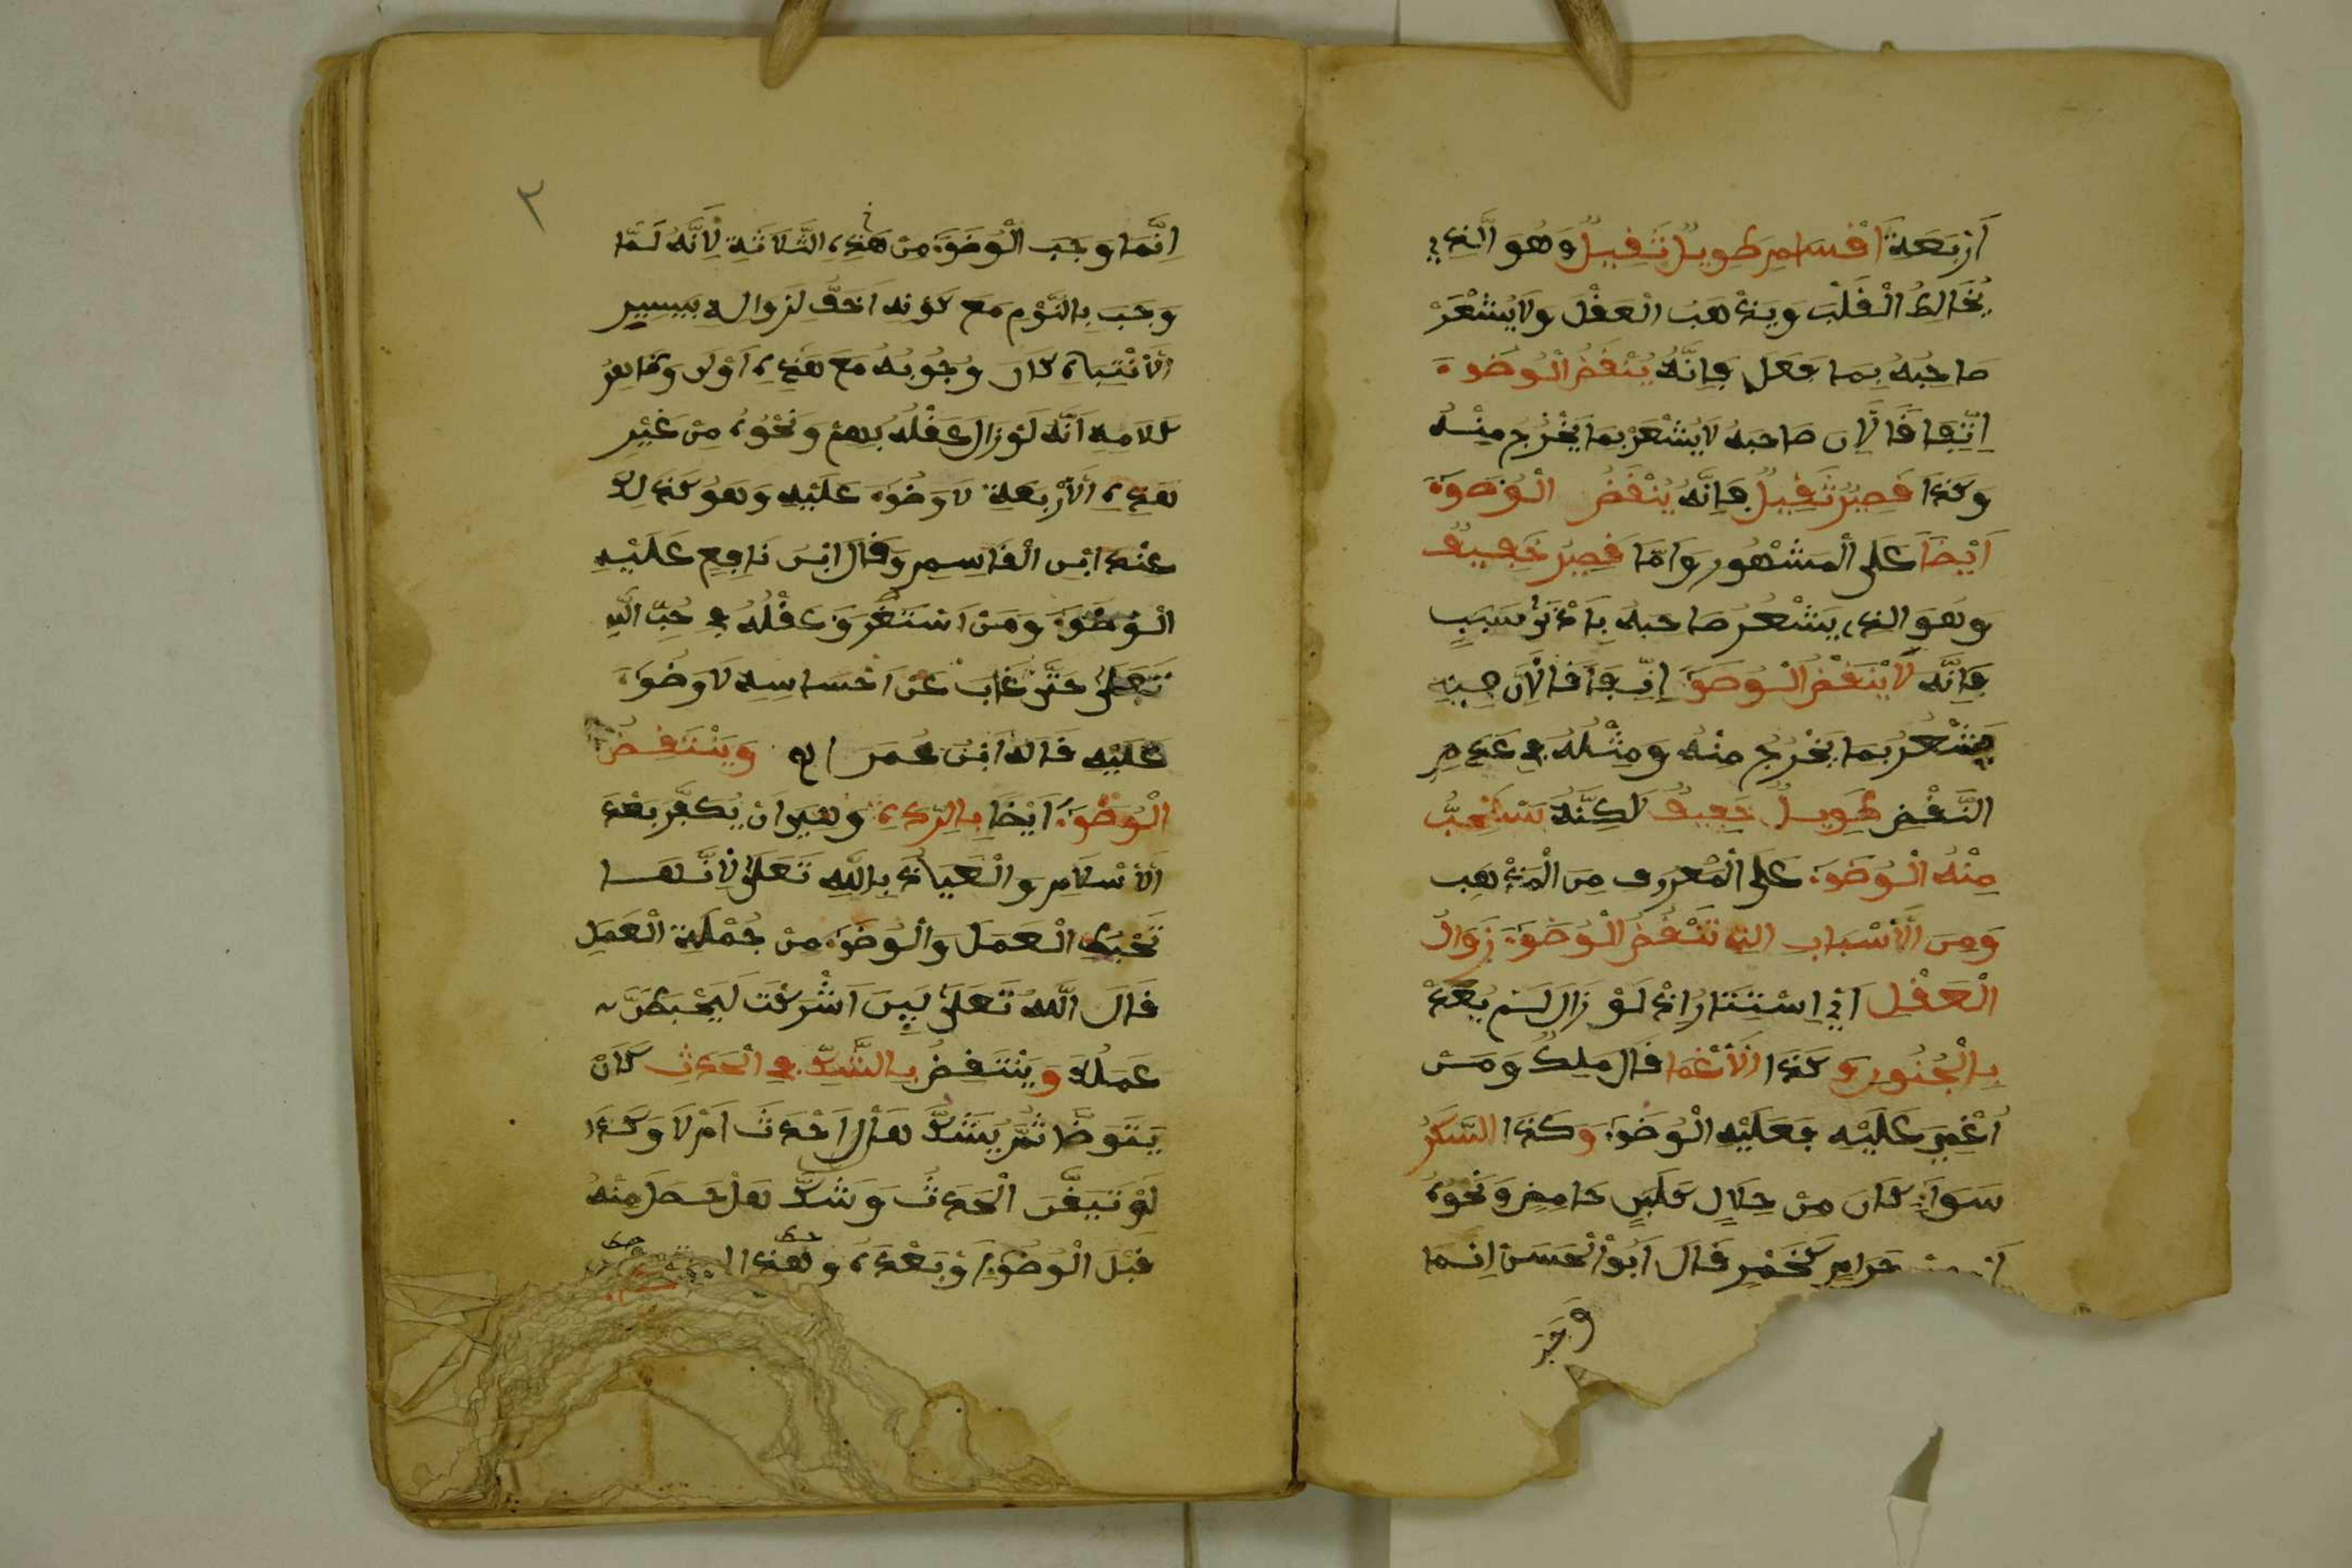 أَرْبَعَةُ أَقْسَامٍ طَوِيلٌ ثَقِيلٌ وَهُوَ الَّذِي
يُخَالِطُ الْقَلْبَ وَيَذْهَبُ الْعَقْلَ وَلَا يُشْعَرْ
صَاحِبُهُ بِمَا فَعَلَ فَإِنَّهُ يُنْقَضُ الْوُضُوءَ
اِتِّفَاقًا لِأَنَّ صَاحِبَهُ لَا يَشْعَرْ بِمَا يَخْرُجُ مِنْهُ
وَكَذَا قَصِيرٌ ثَقِيلٌ فَإِنَّهُ يُنْقَضُ الْوُضُوءَ
أَيْضًا عَلَى الْمَشْهُورِ وَأَمَّا قَصِيرٌ خَفِيفٌ
وَهُوَ الذي يَشْعُرُ صَاحِبُهُ بِأَدْنَى سَبَبٍ
فَإِنَّهُ لَا يَنْقُضُ الْوُضُوءَ اِتِّفَاقًا لِأَنَّ حِينِهِ
يَشْعُرُ بِمَا يَخْرُجُ مِنْهُ وَمِثْلُهُ فِي عَدَمِ
النَّقْضِ طَوِيلٌ خَفِيفٌ لَكِنَّهُ يَسْتَحِبُّ
مِنْهُ الْوُضُوءَ عَلَى الْمَعْرُوفِ مِنَ الْمَذْهَبِ
وَمِنَ الْأَسْبَابِ التي تَنْقُضُ الْوُضُوءَ زَوَالُ
الْعَقْلِ أَيْ اِسْتِتَارُهُ إِذْ لَوْ زَالَ لَمْ يُعَدْ
بِالْجُنُونِ وَكَذَا الْأَغْمَا قَالَ مَلِكٌ وَمَنْ
أُغْمِيَ عَلَيْهِ فَعَلَيْهِ الْوُضُوءَ وَكَذَا السَّكَرُ
سَوَاءٌ كَانَ مِنْ حِلَالٍ كَلَبَنٍ حَامِضٍ وَنَحْوِهِ
حَرَامٍ كَخَمْرٍ قَالَ أَبُو الْحَسَنْ إِنَّمَا
وجب
٣
إِنَّمَا وَجَبَ الْوُضُوءَ مِنْ هَذِهِ الثَّلَاثَةِ لِأَنَّهُ لَمَّا
وَجَبَ بِالنَّوْمِ مَعَ كَوْنِهِ أَخَفَّ لِزَوَالِهِ بِيَسِيرِ
الْأَنْتِبَاهِ كَانَ وُجُوبُهُ مَعَ هَذِهِ أَوْلَى وَظَاهِرُ
كَلَامِهِ أَنَّهُ لَوْ زَالَ عَقْلُهُ بِهَمٍّ وَنَحْوِهِ مِنْ غَيْرِ
هَذِهِ الْأَرْبَعَةِ لَا وَضُوءَ عَلَيْهِ وَهُوَ كَذَلِكَ
عِنْدَ ابْنِ الْقَاسِمِ وَقَالَ ابْنُ نَافِعٍ عَلَيْهِ
الْوُضُوءَ وَمَنْ اَسْتَغْرَقَ عَقْلُهُ فِي حُبِّ اللَّهِ
تَعَلَى حَتَّى غَابَ عَنْ اَحْسَاسِهِ لَا وَضُوءَ
عَلَيْهِ قَالَهُ ابْنُ عُمَرَ اه وَيَنْتَقِضُ
الْوُضُوءُ أَيْضًا بِالرِّدَّةِ وَهِيَ أَنْ يُكَفَّرَ بَعْدَ
الْأَسْلَامِ وَالْعَيَاذُ بِاللَّهِ تَعَلَى لِأَنَّهَا
تُحْبِطُ الْعَمَلَ وَالْوُضُوءَ مِنْ جُمْلَةِ الْعَمَلِ
قَالَ اللَّهُ تَعَلَى لَيِنَ أَشْرَكْتَ لَيَحْبَطَنَّ
عَمَلُكَ وَيَنْتَقِضُ بِالشَّكِّ فِي الْحَدَثِ كَأَنْ
يَتَوَضَّأ ثُمَّ يَشُكَّ هَلْ أَحْدَثَ أَمْ لَا وَكَذَا
لَوْ تَيَقَّنَ الْحَدَثَ وَشَكَّ هَلْ حَصَلَ مِنْهُ
قَبْلَ الْوُضُوءِ أَوْ بَعْدَهُ وَهَذَا